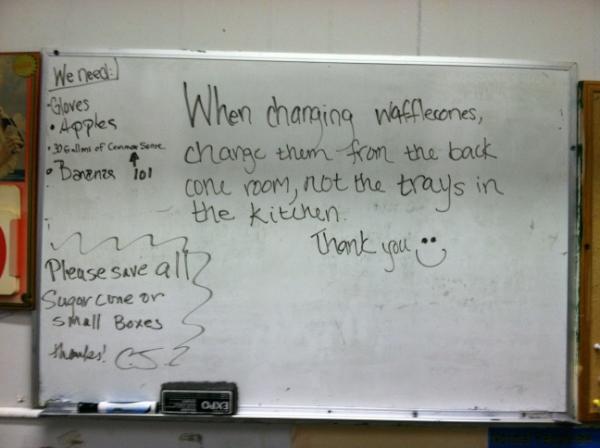 We need:
• Gloves
• Apples
• 30 Gallons of Common Sense
• Bananas 101
When changing wafflecones,
change them from the back
cone room, not the trays in
the kitchen.
Thank you
Please save all
Sugar cone or
small Boxes
thanks!
EXPO